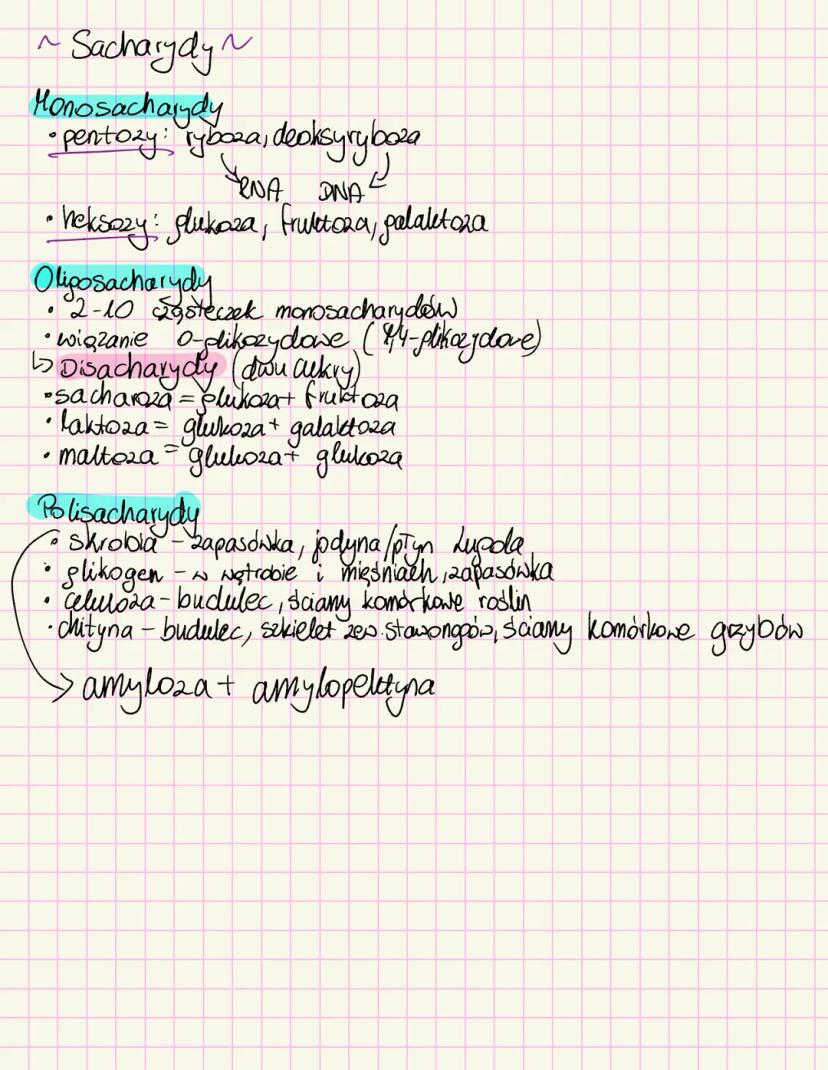 ~ Sacharydy ~
Monosacharydy
• pentozy: ryboza, deoksyryboza
RNA DNA
• heksozy: glukoza, fruktoza, galaktoza
Oligosacharydy
• 2-10 cząsteczek monosacharydów
• wiązanie O-glikozydowe ( 1,4-glikozydowe)
↳ Disacharydy (dwu cukry)
• sacharoza = glukoza + fruktoza
• laktoza = glukoza + galaktoza
• maltoza = glukoza + glukoza
Polisacharydy
• skrobia - zapasówka, jodyna/płyn Lugola
• glikogen - w wątrobie i mięśniach, zapasówka
• celuloza - budulec, ściany komórkowe roślin
• chityna - budulec, szkielet zew. stawonogów, ściany komórkowe grzybów
→ amyloza + amylopektyna